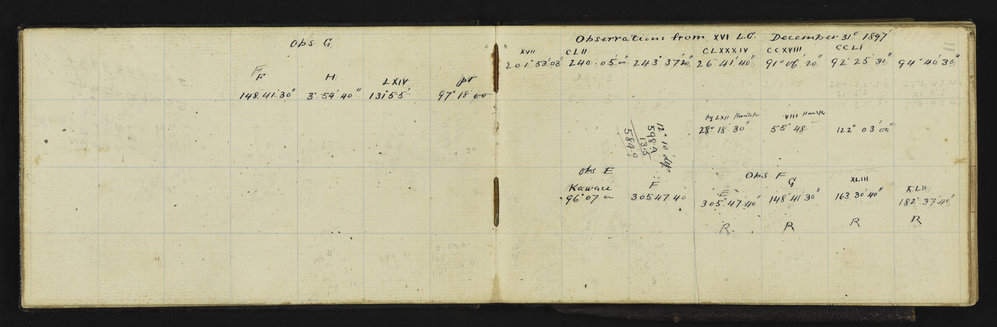 Obs G
F
F H LXIV
148. 41. 30" 3°. 54'. 40" 131° 55' 97° 18' 00"
Observations from XVI L.G. December 31st 1897
XVII CLII CLXXXIV CCXVIII CCLI
201° 53' 03" 240. 05' 243° 37' 20" 26° 41' 40" 91° 06' 20" 92° 25' 30" 94° 40' 30"
28° 18' 30" 55° 48' 122° 03' 00"
12° 10'
598.9
13.5
589.9
Obs E Obs F
Kawau F E G XLIII XLII
96° 07' 305 47 40 305° 47' 40" 148° 41' 30" 163 30' 40" 182° 37' 40"
R R R R